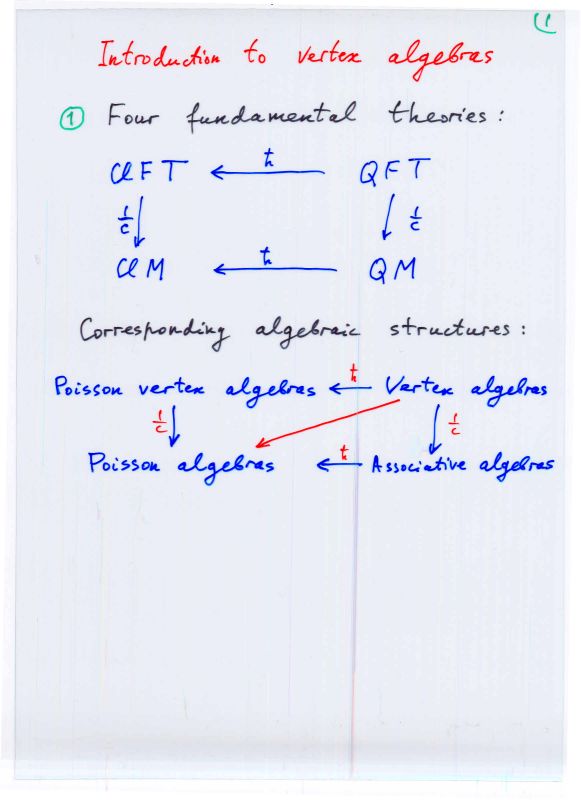 (1
Introduction to vertex algebras
① Four fundamental theories:
ClFT ← ħ QFT
1/c ↓ ↓ 1/c
ClM ← ħ QM
Corresponding algebraic structures:
Poisson vertex algebras ← ħ Vertex algebras
1/c ↓ ↓ 1/c
Poisson algebras ← ħ Associative algebras